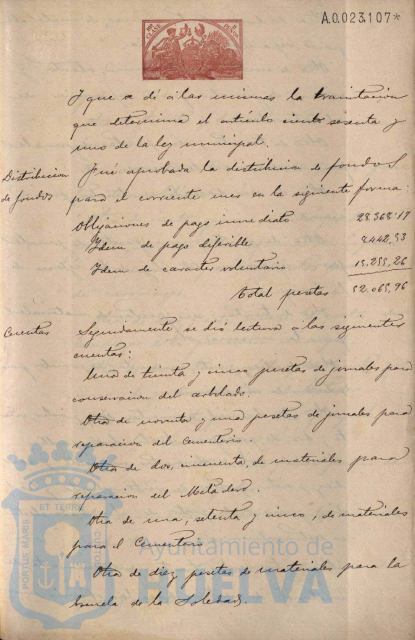 A.0.023.107*
y que se dé á las mismas la tramitacion
que determina el artículo ciento sesenta y
uno de la ley municipal.
Distribucion de fondos
Fué aprobada la distribucion de fondos
para el corriente mes en la siguiente forma:
Obligaciones de pago inmediato 28.368.17
Idem de pago diferible 8.442,53
Idem de caracter voluntario 15.255,26
Total pesetas 52.065,96
Cuentas
Seguidamente se dió lectura á las siguientes
cuentas:
Una de treinta y cinco pesetas de jornales para
conservacion del arbolado.
Otra de noventa y una pesetas de jornales para
reparacion del Cementerio.
Otra de dos, cincuenta, de materiales para
reparacion del Matadero.
Otra de una, setenta y cinco, de materiales
para el Cementerio
Otra de diez pesetas de materiales para la
Escuela de la Soledad.
PORTUS MARIS
ET TERRE
Ayuntamiento de
HUELVA